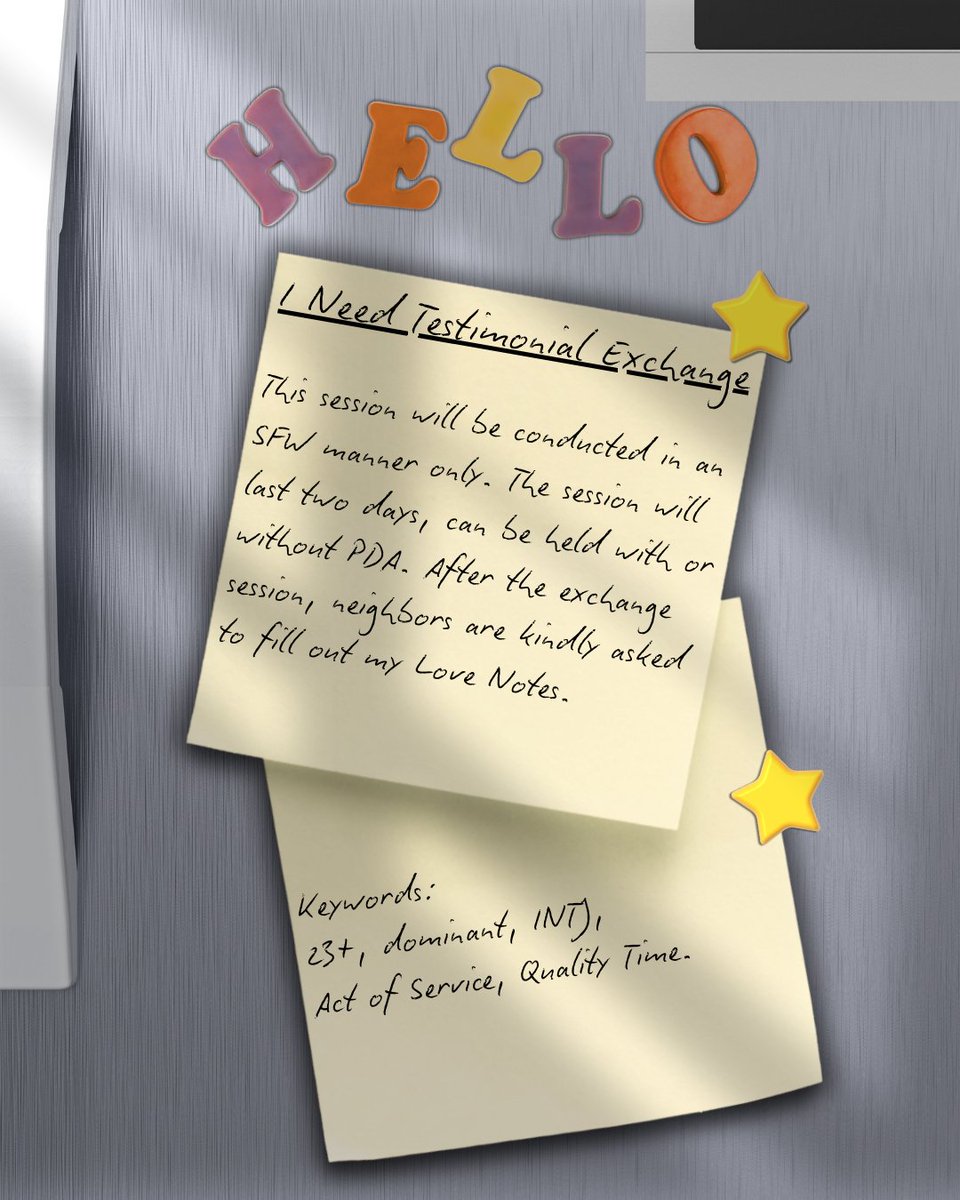 HELLO
I Need Testimonial Exchange
This session will be conducted in an
SFW manner only. The session will
last two days, can be held with or
without PDA. After the exchange
session, neighbors are kindly asked
to fill out my Love Notes.
Keywords:
23+, dominant, INTJ,
Act of Service, Quality Time.